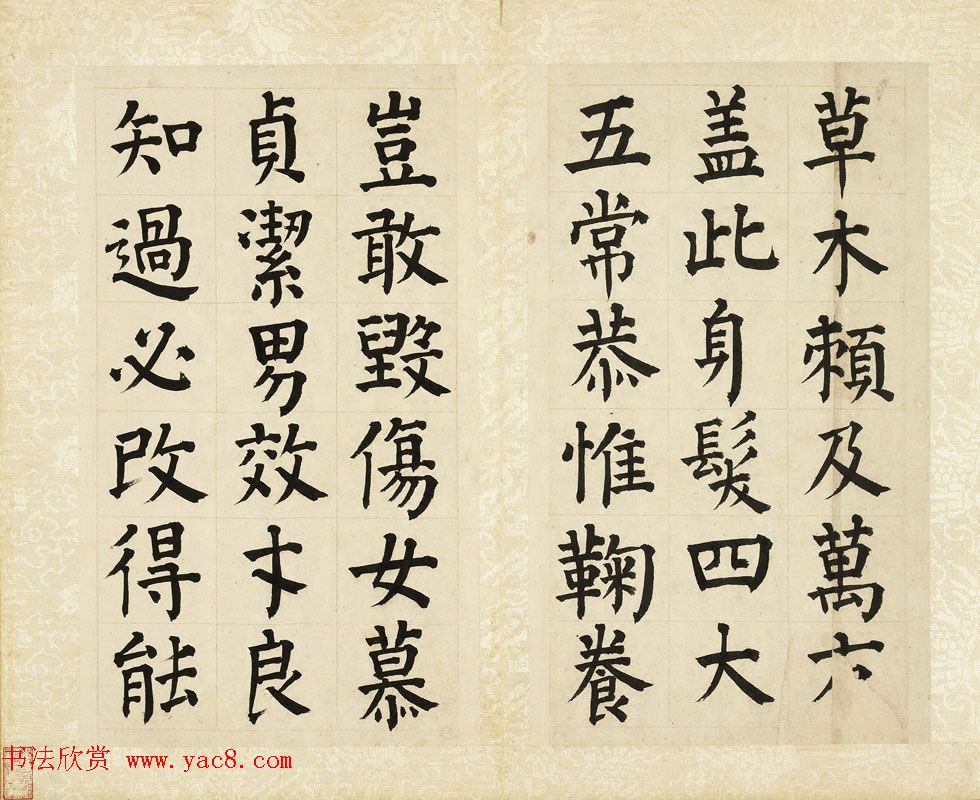 草木賴及萬方
盖此身髮四大
五常恭惟鞠養
豈敢毀傷女慕
貞潔男效才良
知過必改得能
书法欣赏 www.yac8.com